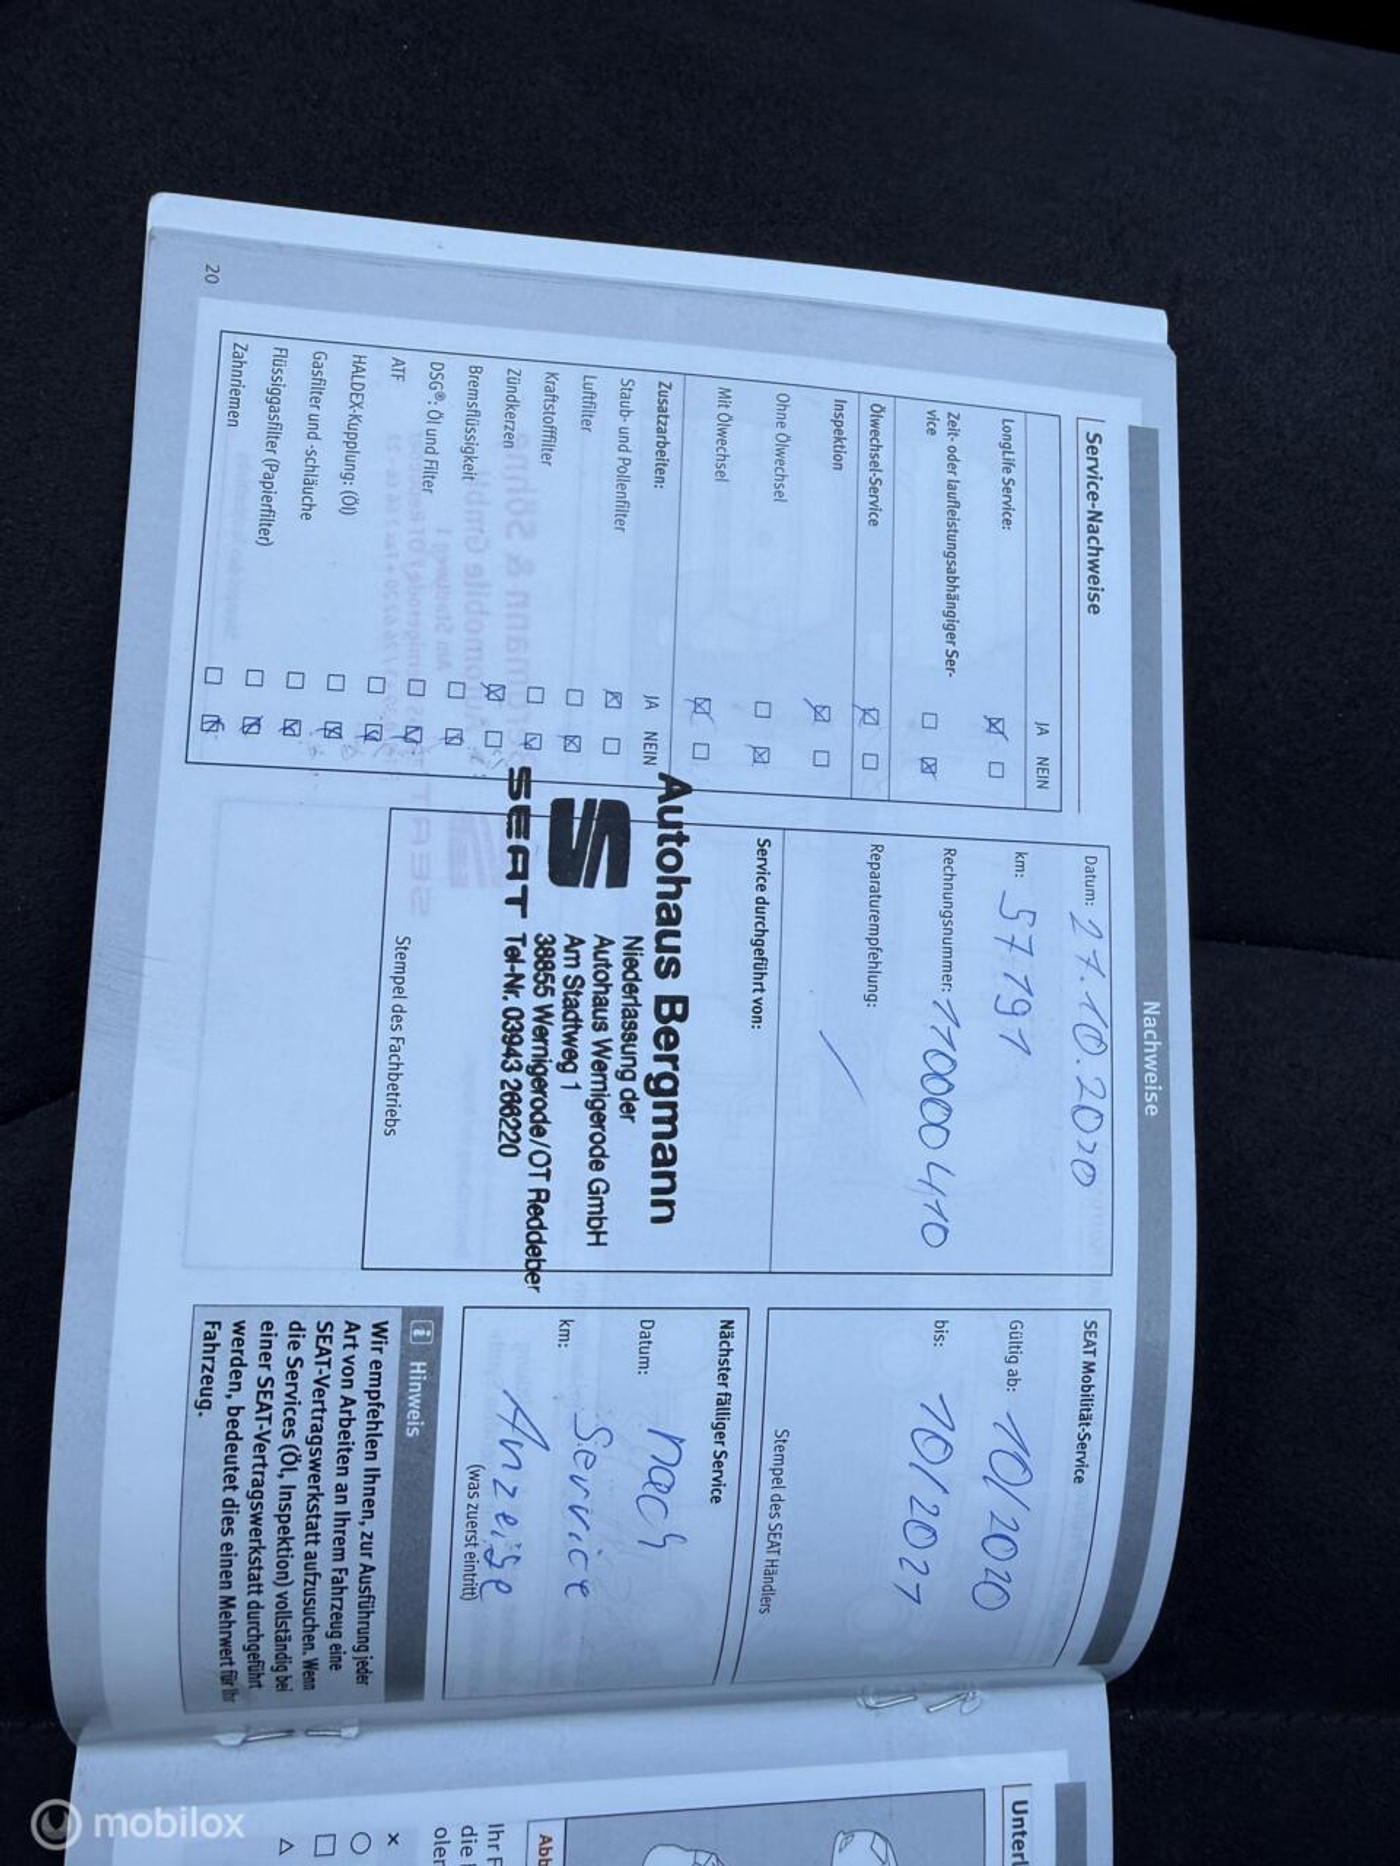 Nachweise
Service-Nachweise
JA NEIN
LongLife Service: ☒ ☐
Zeit- oder laufleistungsabhängiger Ser-
vice ☐ ☒
Ölwechsel-Service ☒ ☐
Inspektion ☒ ☐
Ohne Ölwechsel ☐ ☒
Mit Ölwechsel ☒ ☐
Zusatzarbeiten: JA NEIN
Staub- und Pollenfilter ☒ ☐
Luftfilter ☐ ☒
Kraftstofffilter ☐ ☒
Zündkerzen ☒ ☐
Bremsflüssigkeit ☐ ☒
DSG®: Öl und Filter ☐ ☒
ATF ☐ ☒
HALDEX-Kupplung: (Öl) ☐ ☒
Gasfilter und -schläuche ☐ ☒
Flüssiggasfilter (Papierfilter) ☐ ☒
Zahnriemen ☐ ☒
20
Datum: 27.10.2020
km: 57191
Rechnungsnummer: 110000410
Reparaturempfehlung:
Service durchgeführt von:
Autohaus Bergmann
Niederlassung der
Autohaus Wernigerode GmbH
Am Stadtweg 1
38855 Wernigerode/OT Reddeber
SEAT Tel-Nr. 03943 266220
Stempel des Fachbetriebs
SEAT Mobilität-Service
Gültig ab: 10/2020
bis: 10/2021
Stempel des SEAT Händlers
Nächster fälliger Service
Datum: nach
km: Service
Anzeige
(was zuerst eintritt)
i Hinweis
Wir empfehlen Ihnen, zur Ausführung jeder
Art von Arbeiten an Ihrem Fahrzeug eine
SEAT-Vertragswerkstatt aufzusuchen. Wenn
die Services (Öl, Inspektion) vollständig bei
einer SEAT-Vertragswerkstatt durchgeführt
werden, bedeutet dies einen Mehrwert für Ihr
Fahrzeug.
Unterl
Abb
Ihr F
die
oler
mobilox